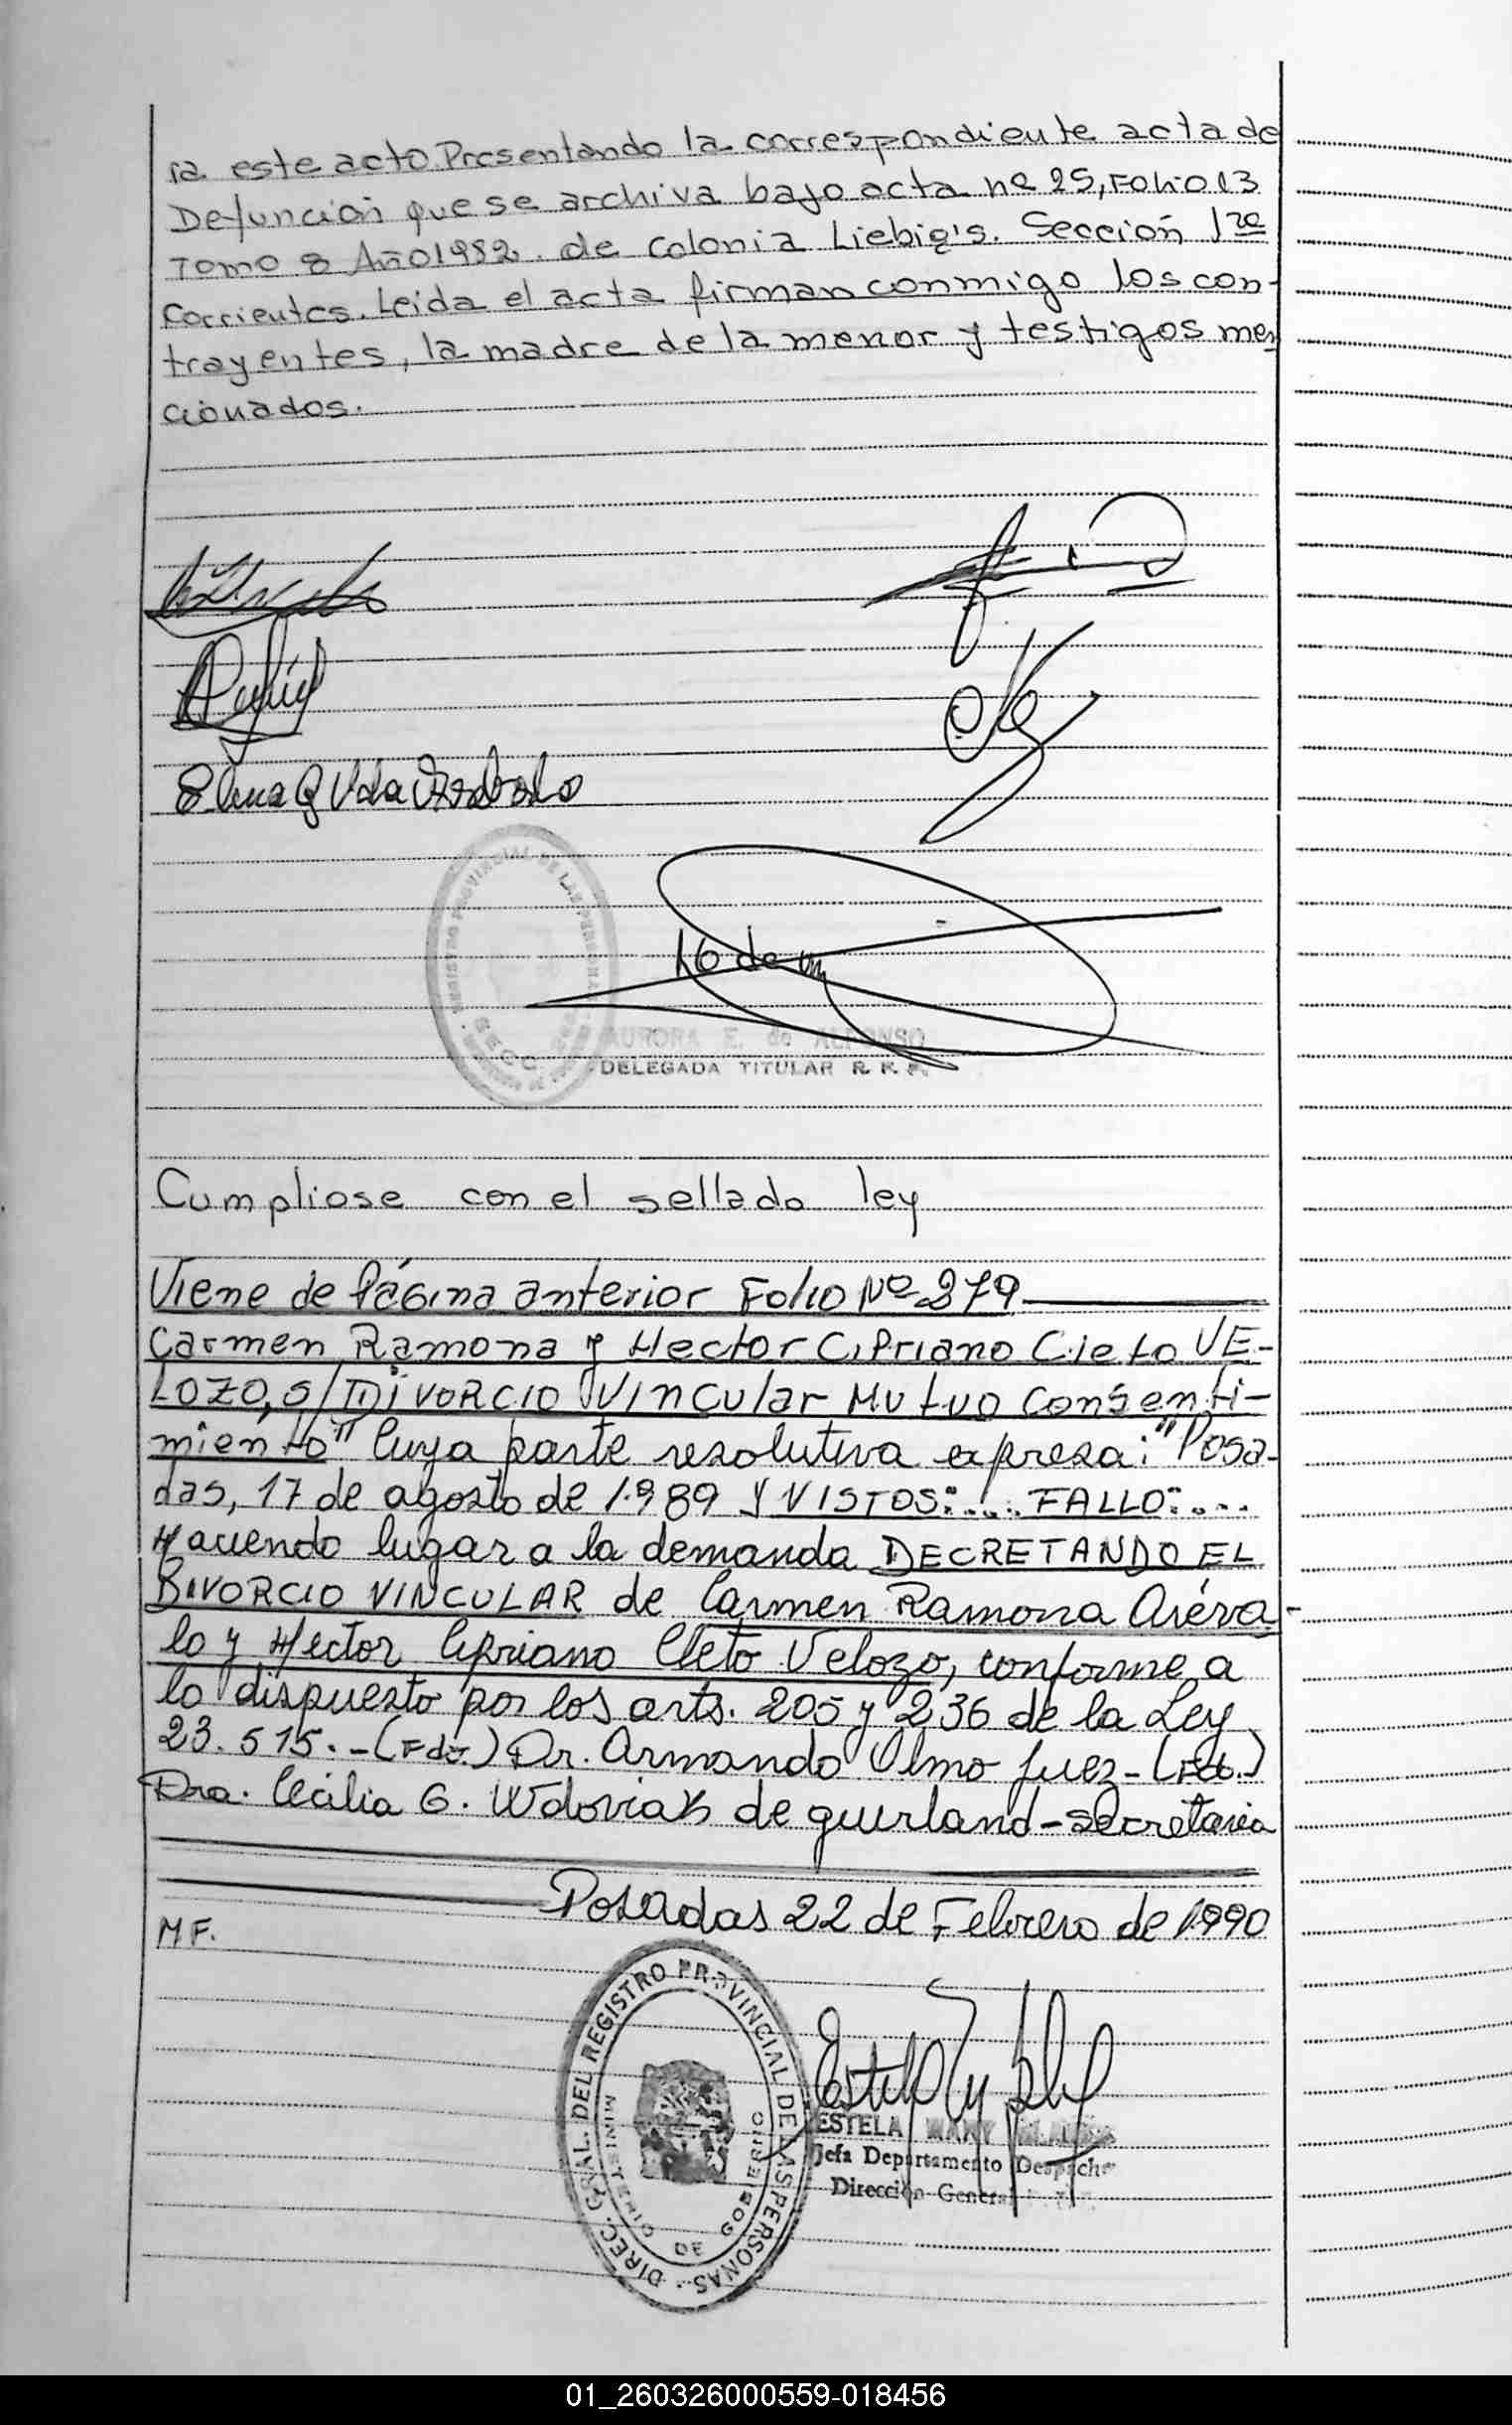 ra este acto. Presentando la correspondiente acta de
Defunción que se archiva bajo acta nº 25, Folio 13
Tomo 8 Año 1982. de Colonia Liebig's. Sección 1ra
Corrientes. Leida el acta firman conmigo los con-
trayentes, la madre de la menor y testigos men
cionados.
Elena G Vda
REGISTRO PROVINCIAL DE LAS PERSONAS
SECC.
AURORA E. de ALFONSO
DELEGADA TITULAR R. P. P.
Cumpliose con el sellado ley
Viene de Página anterior Folio Nº 279
Carmen Ramona y Hector Cipriano Cleto VE-
LOZO, S/ DIVORCIO Vincular Mutuo Consenti-
miento" Cuya parte resolutiva expresa: "Posa-
das, 17 de agosto de 1.989 Y VISTOS:.... FALLO:....
Haciendo lugar a la demanda DECRETANDO EL
DIVORCIO VINCULAR de Carmen Ramona Aréva-
lo y Hector Cipriano Cleto Velozo, conforme a
lo dispuesto por los arts. 205 y 236 de la Ley
23.515.-(Fdo.) Dr. Armando Olmo Juez-(Fdo.)
Dra. Cecilia G. Wdoviak de guerland-secretaria
Posadas 22 de Febrero de 1.990
MF.
DIREC. GRAL. DEL REGISTRO PROVINCIAL DE LAS PERSONAS
MINISTERIO DE GOBIERNO
ESTELA
Jefa Departamento Despacho
Dirección General
01_260326000559-018456